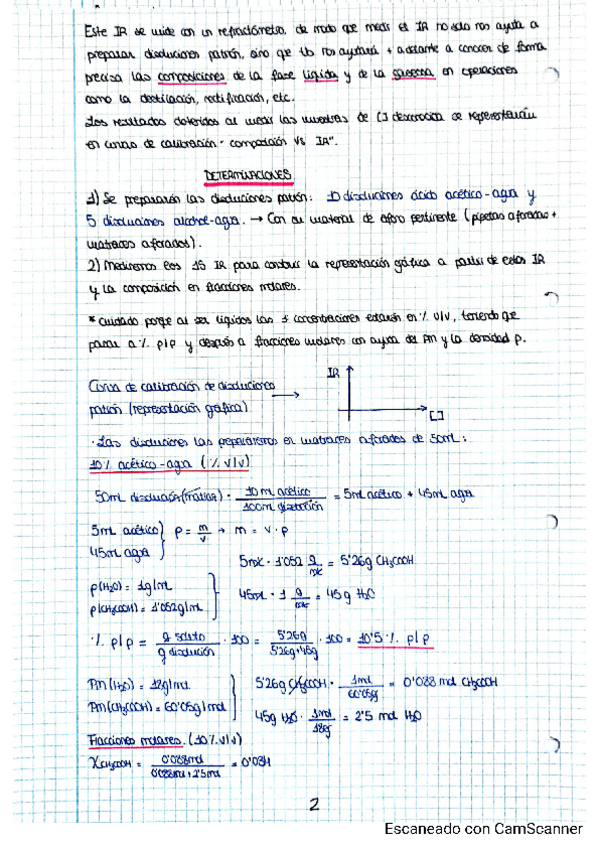 Este IR se mide con un refractómetro. de modo que medir el IR no solo nos ayuda a
preparar disoluciones patrón, sino que tb nos ayudará + adelante a conocer de forma
precisa las composiciones de la fase líquida y de la gaseosa en operaciones
como la destilación, rectificación, etc.
Los resultados obtenidos al medir las muestras de [] desconocida se representarán
en curvas de calibración - composición vs IR".
DETERMINACIONES
1) Se prepararán las disoluciones patrón: 10 disoluciones ácido acético-agua y
5 disoluciones alcohol-agua. → Con su material de aforo pertinente (pipetas aforadas +
matraces aforados).
2) Mediremos los 15 IR para construir la representación gráfica a partir de estos IR
y la composición en fracciones molares.
* Cuidado porque al ser líquidos las ≠ concentraciones estarán en % v/v, teniendo que
pasar a % p/p y después a fracciones molares con ayuda del Pm y la densidad ρ.
Curva de calibración de disoluciones
patrón (representación gráfica)
→
IR
[]
· Las disoluciones las prepararemos en matraces aforados de 50mL:
10% acético-agua (% v/v)
50mL disolución (matraz) · 10 mL acético / 100mL disolución = 5mL acético + 45mL agua
5mL acético
45mL agua
ρ = m/v → m = v · ρ
5mL · 1'052 g/mL = 5'26g CH3COOH
ρ(H2O) = 1g/mL
ρ(CH3COOH) = 1'052g/mL
45mL · 1 g/mL = 45g H2O
% p/p = g soluto / g disolución · 100 = 5'26g / 5'26g+45g · 100 = 10'5 % p/p
Pm(H2O) = 18g/mol
Pm(CH3COOH) = 60'05g/mol
5'26g CH3COOH · 1mol / 60'05g = 0'088 mol CH3COOH
45g H2O · 1mol / 18g = 2'5 mol H2O
Fracciones molares. (10% v/v)
XCH3COOH = 0'088mol / 0'088mol+2'5mol = 0'034
2
Escaneado con CamScanner